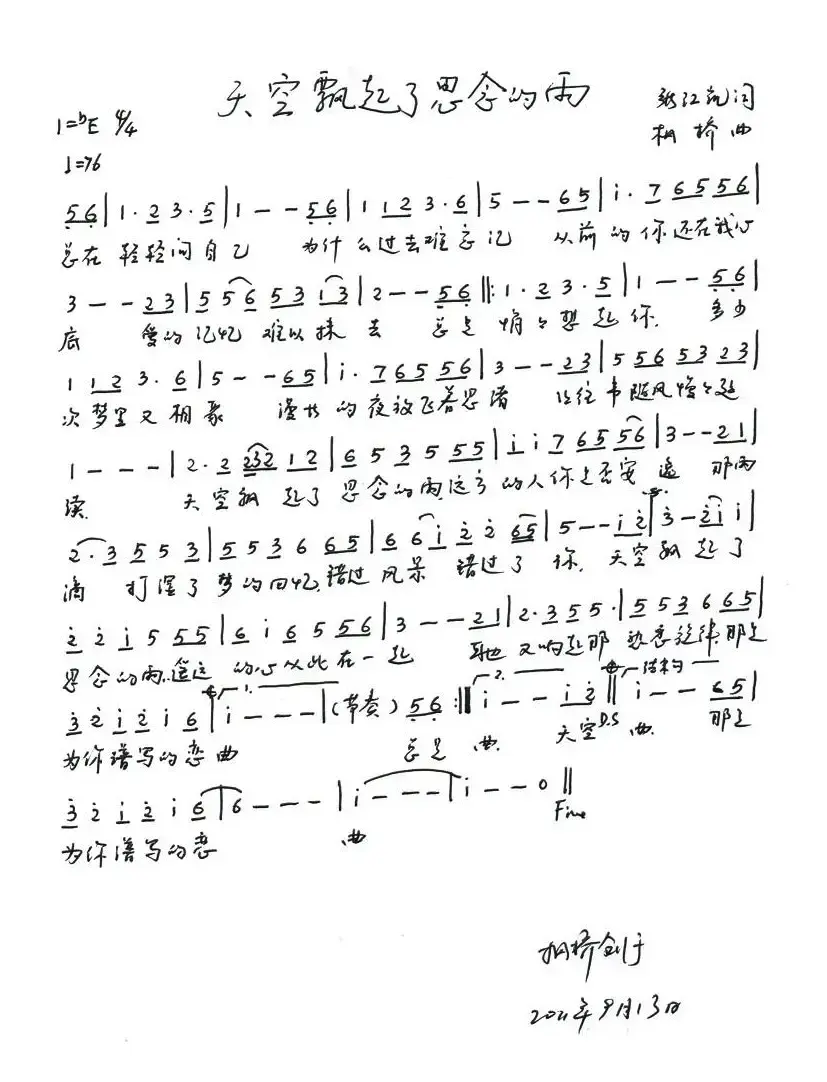 天空飘起了思念的雨
词
1=bE 4/4
相桥 曲
♩=76
5 6 | 1 · 2 3 · 5 | 1 - - 5 6 | 1 1 2 3 · 6 | 5 - - 6 5 | i · 7 6 5 5 6 |
总在 轻轻问自己 为什么过去难忘记 从前的你还在我心
3 - - 2 3 | 5 5 6 5 3 1 3 | 2 - - 5 6 |: 1 · 2 3 · 5 | 1 - - 5 6 |
底 爱的记忆 难以抹去 总是 悄々想起你. 多少
1 1 2 3 · 6 | 5 - - 6 5 | i · 7 6 5 5 6 | 3 - - 2 3 | 5 5 6 5 3 2 3 |
次梦里又相聚 漫长的夜放飞着思绪 让往事随风慢々延
1 - - - | 2 · 2 2 3 2 1 2 | 6 5 3 5 5 5 | i i 7 6 5 5 6 | 3 - - 2 1 |
续. 天空飘起了思念的雨远方的人你是否安逸 那雨
2 · 3 5 5 3 | 5 5 3 6 6 5 | 6 6 i 2 2 6 5 | 5 - - i 2 | 3 - 2 i i |
滴 打湿了梦的回忆.错过风景 错过了你. 天空飘起了
2 2 i 5 5 5 | 6 i 6 5 5 6 | 3 - - 2 1 | 2 · 3 5 5 · | 5 5 3 6 6 5 |
思念的雨. 的心从此在一起 耳边又响起那 那是
1. 2. 结构
3 2 i 2 i 6 | i - - - | (节奏) 5 6 :|| i - - i 2 || i - - 6 5 |
为你谱写的恋曲 总是 曲. 天空D.S 曲. 那是
3 2 i 2 i 6 | 6 - - - | i - - - | i - - 0 ||
为你谱写的恋 曲 Fine
相桥创于
2021年9月13日